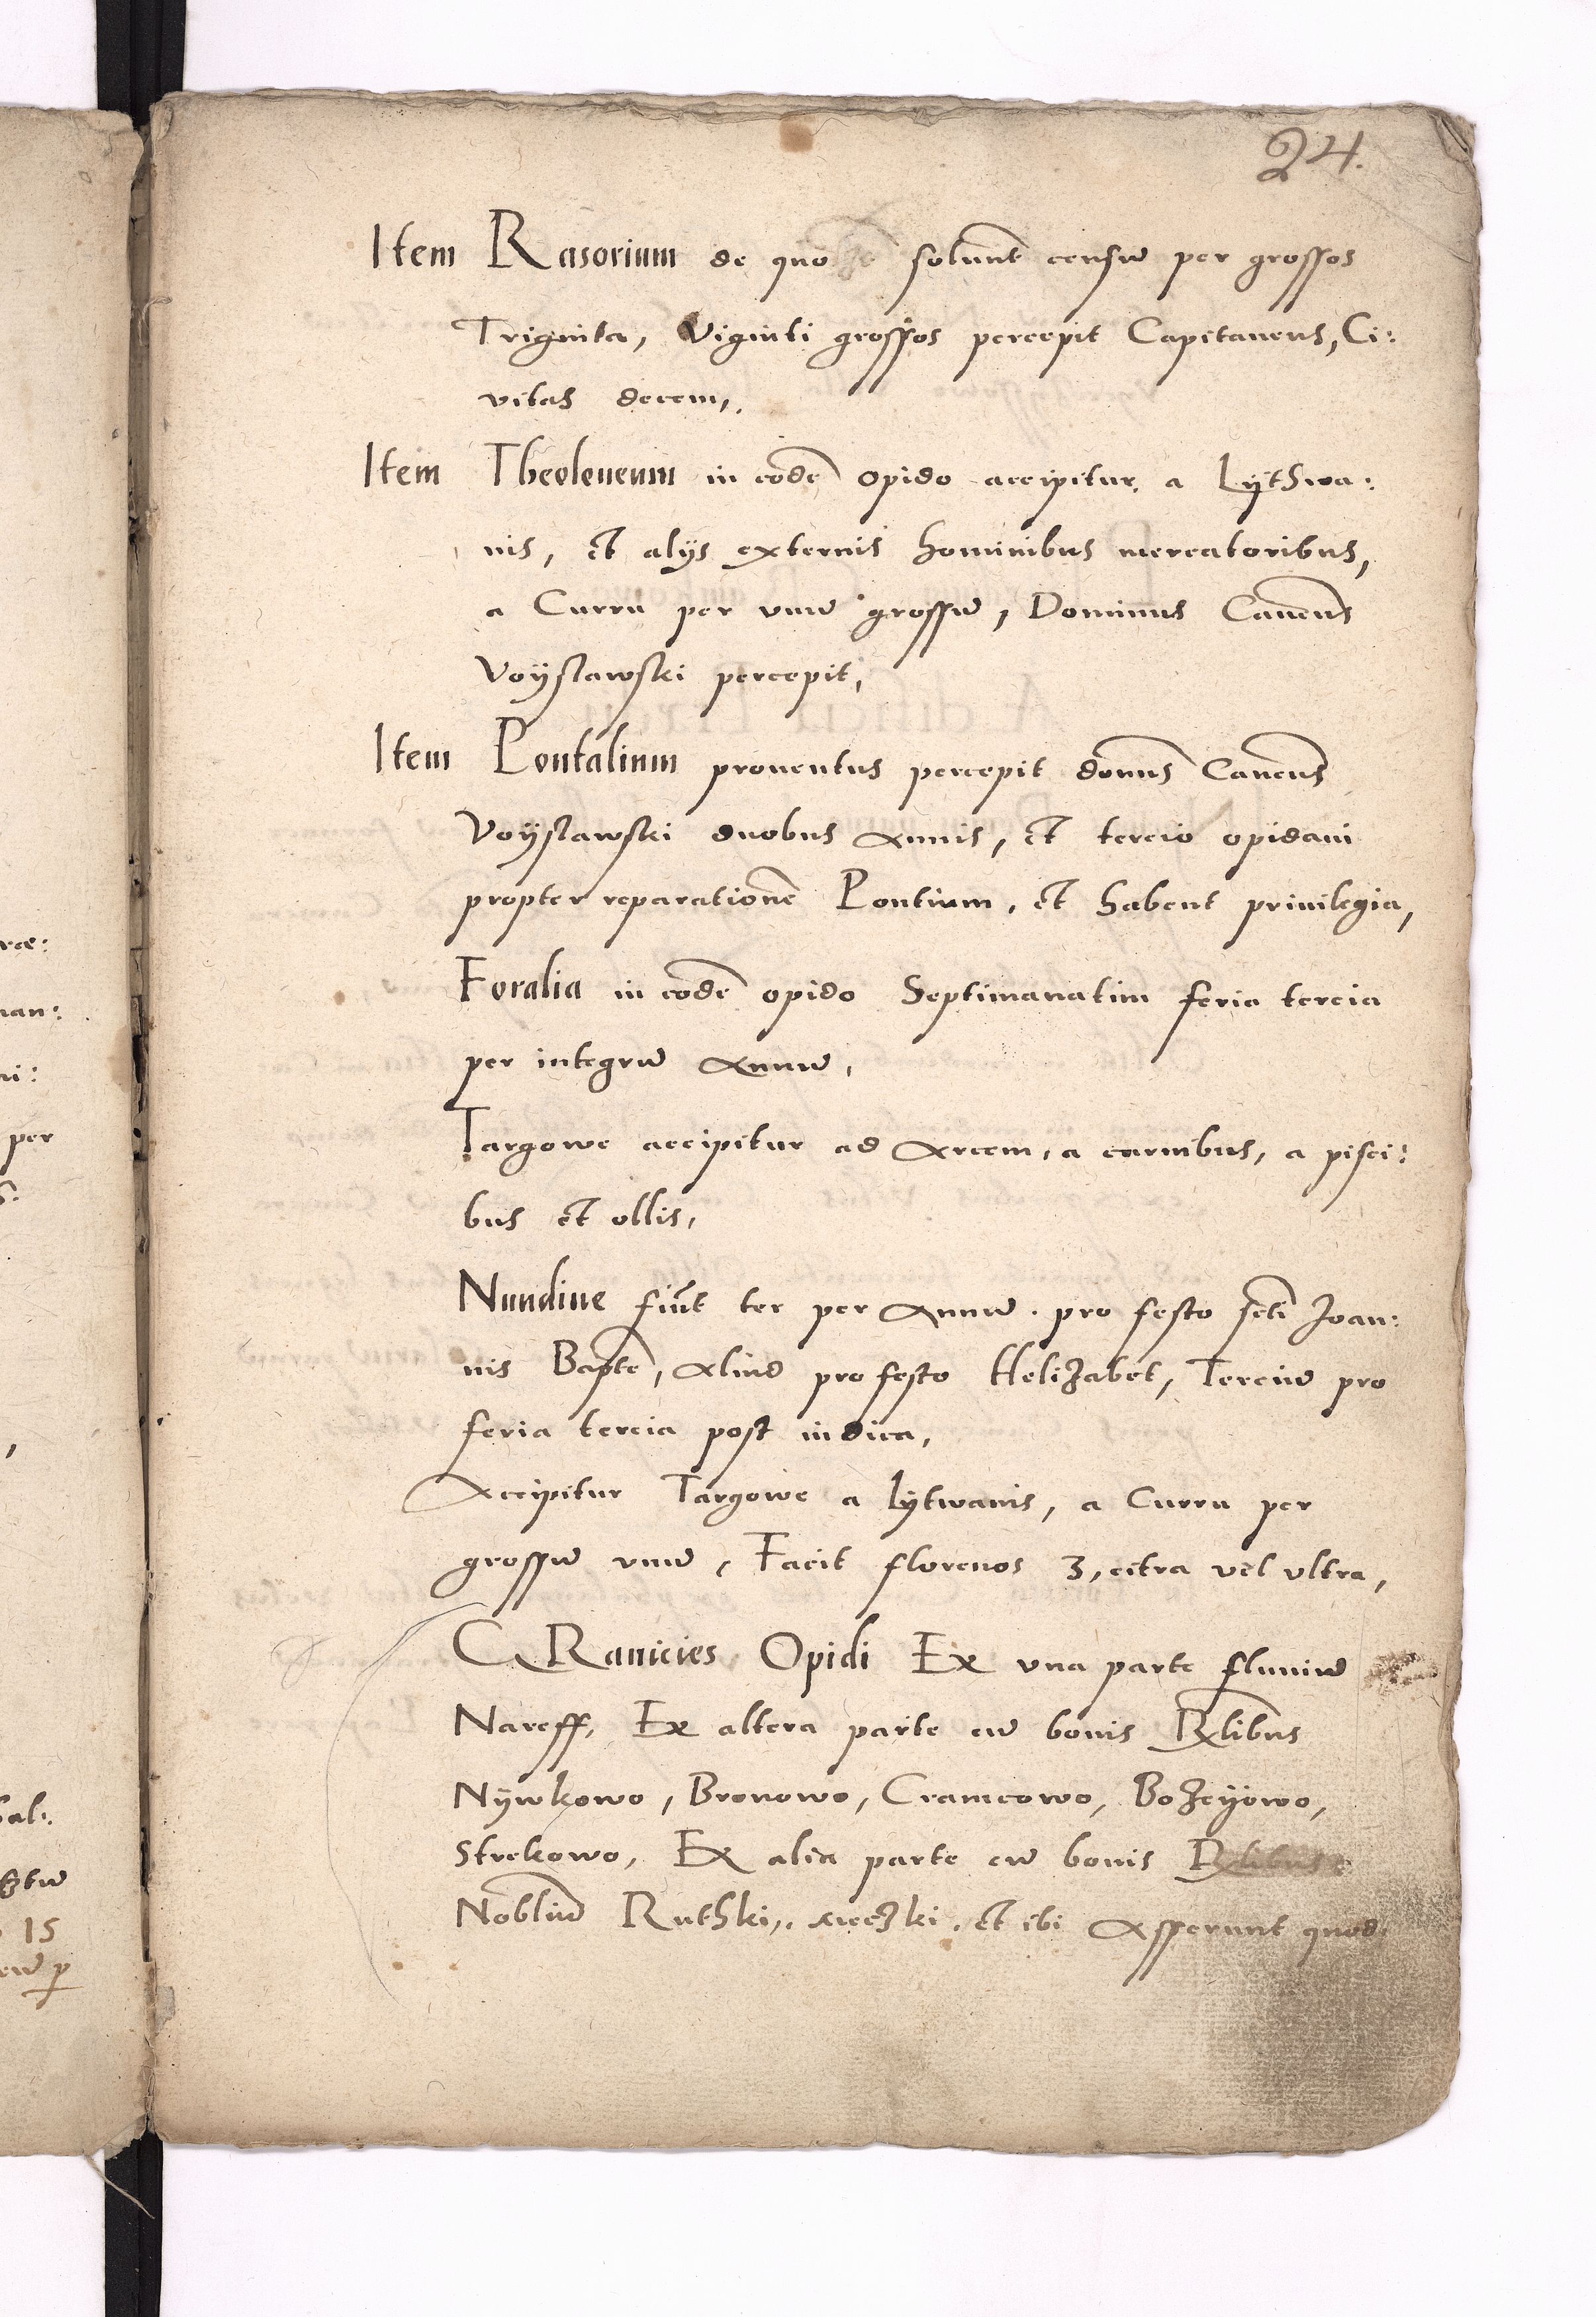 24.
Item Rasorium de quo solunt censũ per grossos
Triginta, Viginti grossos percepit Capitaneus, Ci:
vitas decem,
Item Theoloneum in eodẽ opido accipitur a Lÿtħwa:
nis, et alÿs externis hominibus mercatoribus,
a Curru per vnũ grossũ, Dominus Caneus
Voÿslawski percepit,
Item Pontalium prouentus percepit domus Caneus
Voÿslawski duobus Annis, et tercio opidani
propter reparationẽ Pontium, et habent priuilegia,
Foralia in eodẽ opido Septimanatim feria tercia
per integrũ Annũ,
Targowe accipitur ad Arcem, a carnibus, a pisci:
bus et ollis,
Nundine fiũt ter per Annũ. pro festo scti Joan:
nis Bapte, Aliud pro festo Helizabet, Terciũ pro
feria tercia post iudica,
Accipitur Targowe a Lÿtwanis, a Curru per
grossũ vnũ, Facit florenos 3, citra vel vltra,
GRanicies Opidi Ex vna parte fluuiũ
Nareff, Ex altera parte cũ bonis Rlibus
Nÿwkowo, Bronowo, Cramcowo, Bozcÿowo,
Strekowo, Ex alia parte cũ bonis Rlibus
Nobliũ Ruthki, et ibi Asserunt quod
ræ:
nan:
ni:
per
sal:
15